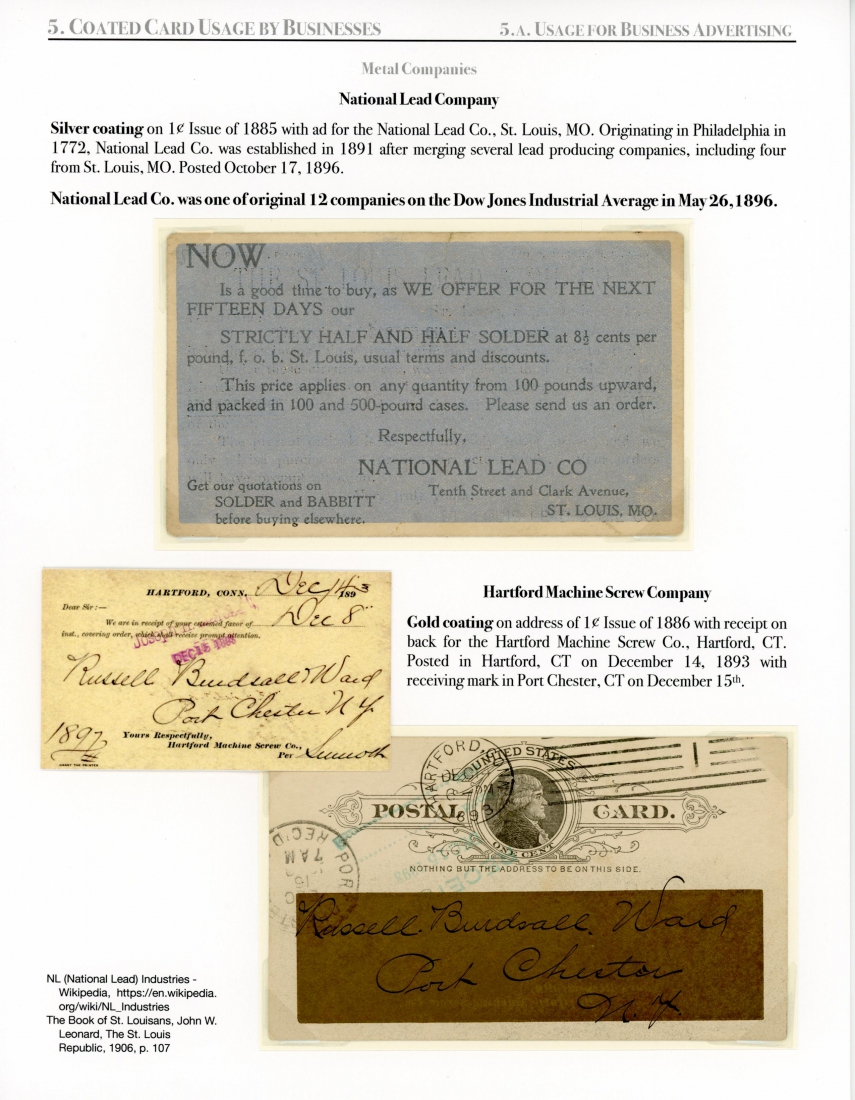 5. COATED CARD USAGE BY BUSINESSES
5.A. USAGE FOR BUSINESS ADVERTISING
Metal Companies
National Lead Company
Silver coating on 1¢ Issue of 1885 with ad for the National Lead Co., St. Louis, MO. Originating in Philadelphia in
1772, National Lead Co. was established in 1891 after merging several lead producing companies, including four
from St. Louis, MO. Posted October 17, 1896.
National Lead Co. was one of original 12 companies on the Dow Jones Industrial Average in May 26, 1896.
NOW
Is a good time to buy, as WE OFFER FOR THE NEXT
FIFTEEN DAYS our
STRICTLY HALF AND HALF SOLDER at 8½ cents per
pound, f. o. b. St. Louis, usual terms and discounts.
This price applies on any quantity from 100 pounds upward,
and packed in 100 and 500-pound cases. Please send us an order.
Respectfully,
NATIONAL LEAD CO
Get our quotations on
SOLDER and BABBITT
before buying elsewhere.
Tenth Street and Clark Avenue,
ST. LOUIS, MO.
HARTFORD, CONN. Dec 14 1893
Dear Sir:—
We are in receipt of your esteemed favor of Dec 8"
inst., covering order, which shall receive prompt attention.
DEC 15 1893
Russell Burdsall & Ward
Port Chester N Y
1897
Yours Respectfully,
Hartford Machine Screw Co.,
Per
Hartford Machine Screw Company
Gold coating on address of 1¢ Issue of 1886 with receipt on
back for the Hartford Machine Screw Co., Hartford, CT.
Posted in Hartford, CT on December 14, 1893 with
receiving mark in Port Chester, CT on December 15th.
HARTFORD,
UNITED STATES
POSTAL CARD.
ONE CENT
NOTHING BUT THE ADDRESS TO BE ON THIS SIDE.
REC'D
7 AM
POR
Russell. Burdsall. Ward
Port Chester
N. Y.
NL (National Lead) Industries -
Wikipedia, https://en.wikipedia.
org/wiki/NL_Industries
The Book of St. Louisans, John W.
Leonard, The St. Louis
Republic, 1906, p. 107